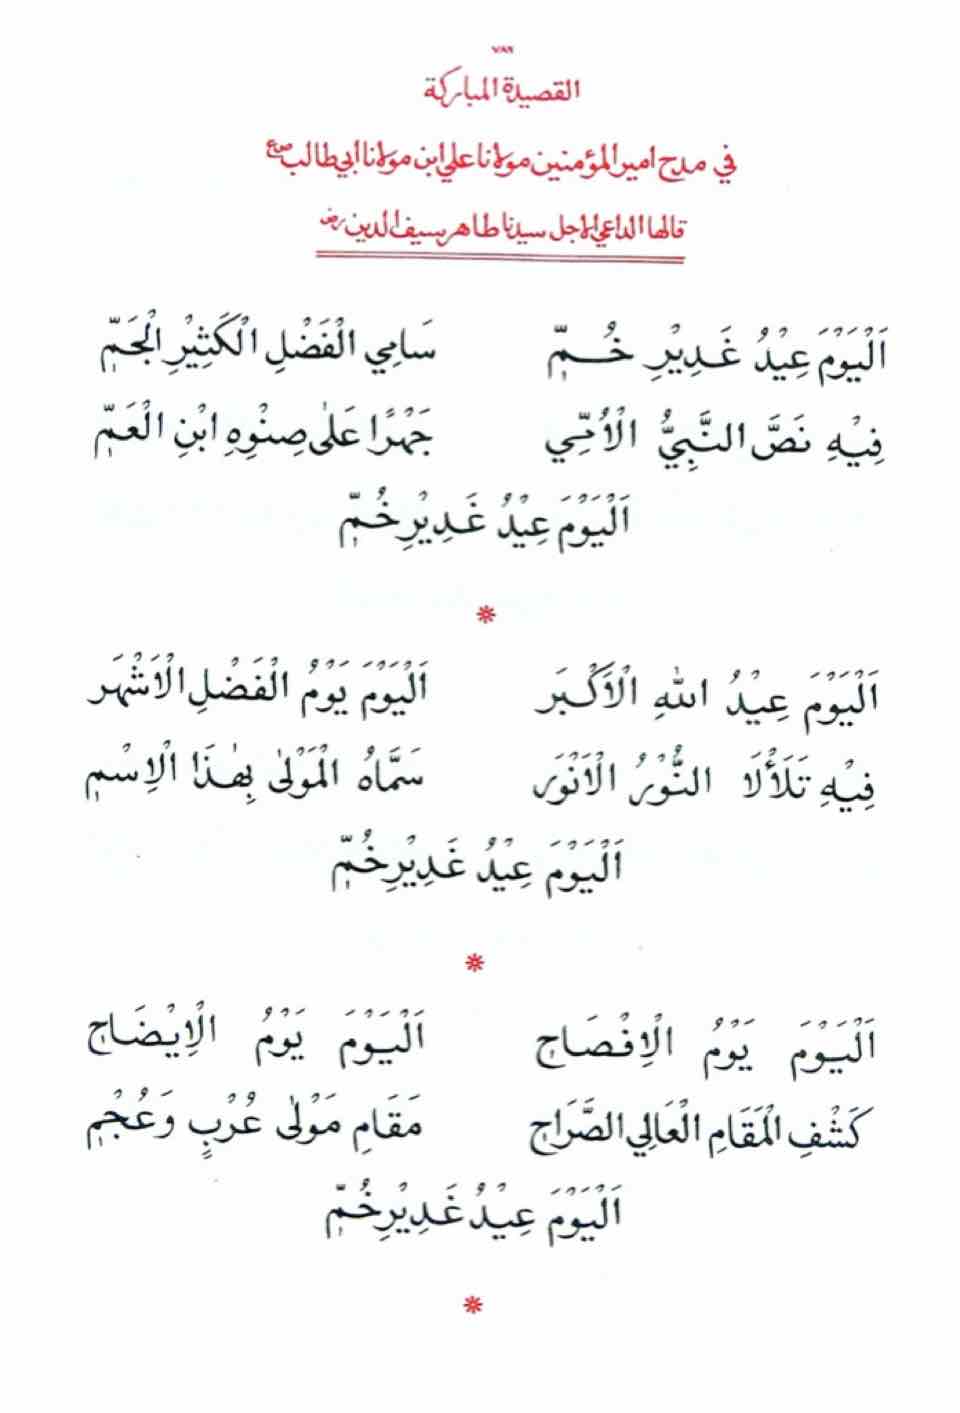 ٧٨٦
القصيدة المباركة
في مدح امير المؤمنين مولانا علي ابن مولانا ابي طالب صع
قالها الداعي الاجل سيدنا طاهر سيف الدين رض
اَلْيَوْمَ عِيْدُ غَدِيْرِ خُمِّ سَامِي الْفَضْلِ الْكَثِيْرِ الْجَمِّ
فِيْهِ نَصَّ النَّبِيُّ الْاُمِّي جَهْرًا عَلٰى صِنْوِهِ ابْنِ الْعَمِّ
اَلْيَوْمَ عِيْدُ غَدِيْرِ خُمِّ
*
اَلْيَوْمَ عِيْدُ اللهِ الْاَكْبَر اَلْيَوْمَ يَوْمُ الْفَضْلِ الْاَشْهَر
فِيْهِ تَلَأْلَا النُّوْرُ الْاَنْوَر سَمَّاهُ الْمَوْلٰى بِهٰذَا الْاِسْمِ
اَلْيَوْمَ عِيْدُ غَدِيْرِ خُمِّ
*
اَلْيَوْمَ يَوْمُ الْاِفْصَاحِ اَلْيَوْمَ يَوْمُ الْاِيْضَاحِ
كَشْفِ الْمَقَامِ الْعَالِي الصَّرَاحِ مَقَامِ مَوْلٰى عُرْبٍ وَعُجْمِ
اَلْيَوْمَ عِيْدُ غَدِيْرِ خُمِّ
*